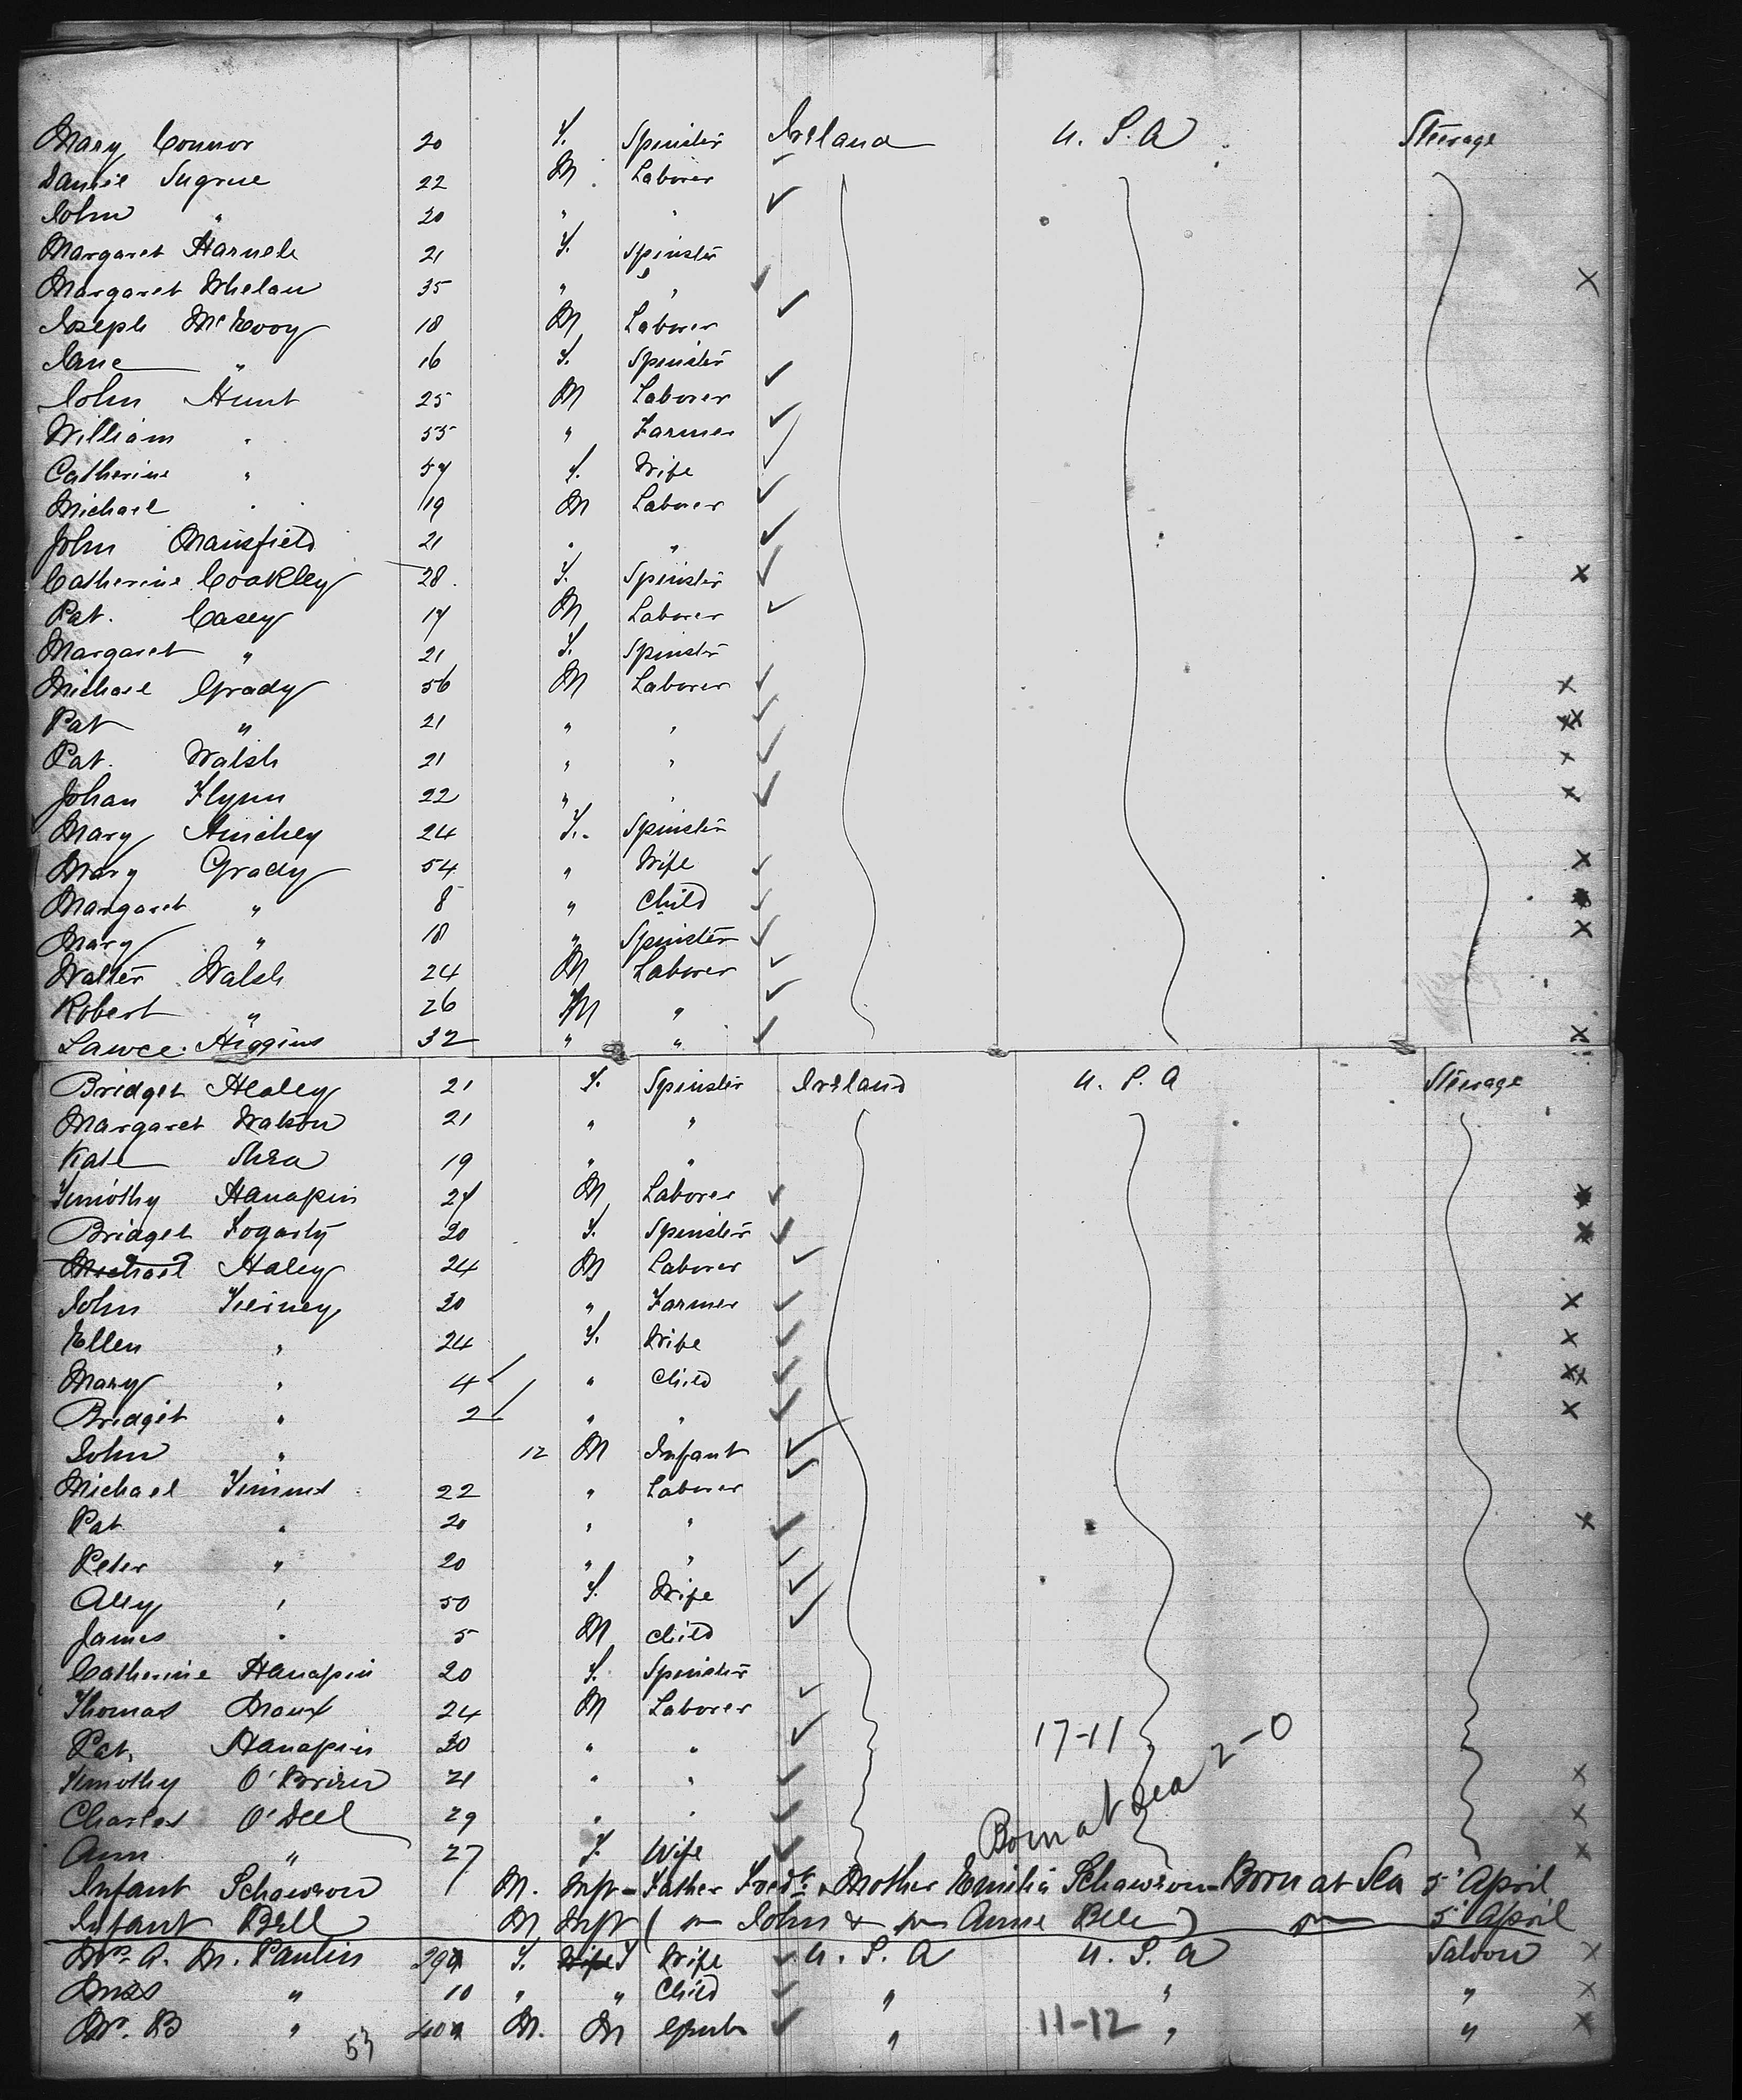 Mary Connor 20 F. Spinster Ireland U.S.A Steerage
Daniel Sugrue 22 M Laborer
John " 20 " "
Margaret Harnele 21 F. Spinster
Margaret Whelan 35 " "
Joseph McEvoy 18 M Laborer
Jane " 16 F. Spinster
John Hunt 25 M Laborer
William " 55 " Farmer
Catherine " 54 F. Wife
Michael " 19 M Laborer
John Mansfield 21 " "
Catherine Coakley 28 F. Spinster
Pat. Casey 14 M Laborer
Margaret " 21 F. Spinster
Michael Grady 56 M Laborer
Pat " 21 " "
Pat. Walsh 21 " "
Johan Flynn 22 " "
Mary Hinchey 24 F. Spinster
Mary Grady 54 " Wife
Margaret " 8 " Child
Mary " 18 " Spinster
Walter Walsh 24 M Laborer
Robert " 26 M "
Lawce. Higgins 32 " "
Bridget Healey 21 F. Spinster Ireland U.S.A Steerage
Margaret Watson 21 " "
Kate Shea 19 " "
Timothy Hanapin 24 M Laborer
Bridget Fogarty 20 F. Spinster
Michael Haley 24 M Laborer
John Tierney 30 " Farmer
Ellen " 24 F. Wife
Mary " 4 " Child
Bridget " 2 " "
John " 12 M Infant
Michael Timms 22 " Laborer
Pat " 20 " "
Peter " 20 " "
Alley " 50 F. Wife
James " 5 M Child
Catherine Hanapin 20 F. Spinster
Thomas 24 M Laborer
Pat. Hanapin 30 " " 17-11
Timothy O'Brien 21 " "
Charles O'Dell 29 " "
Born at sea 2-0
Ann " 27 F. Wife
Infant Schawron M. Inft - Father Fredk Mother Emilia Schawron - Born at Sea 5' April
Infant Bell M Inft ( " John & " Anne Bell ) " 5' April
Mrs A. M. Paulin 29 F. Wife F Wife U.S.A U.S.A Saloon
Miss " 10 " " Child " " "
Mr. B " 40 M. M Gent " 11-12 " "
53